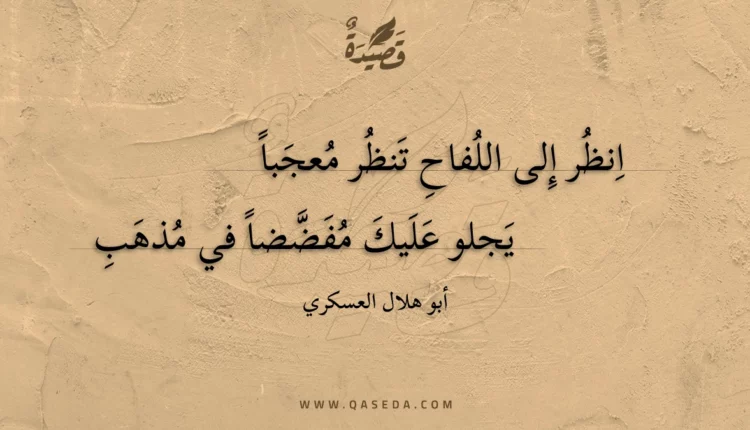 قَصِيدَةٌ
اِنظُر إِلى اللُفاحِ تَنظُر مُعجَباً
يَجلو عَلَيكَ مُفَضَّضاً في مُذهَبِ
أبو هلال العسكري
WWW.QASEDA.COM